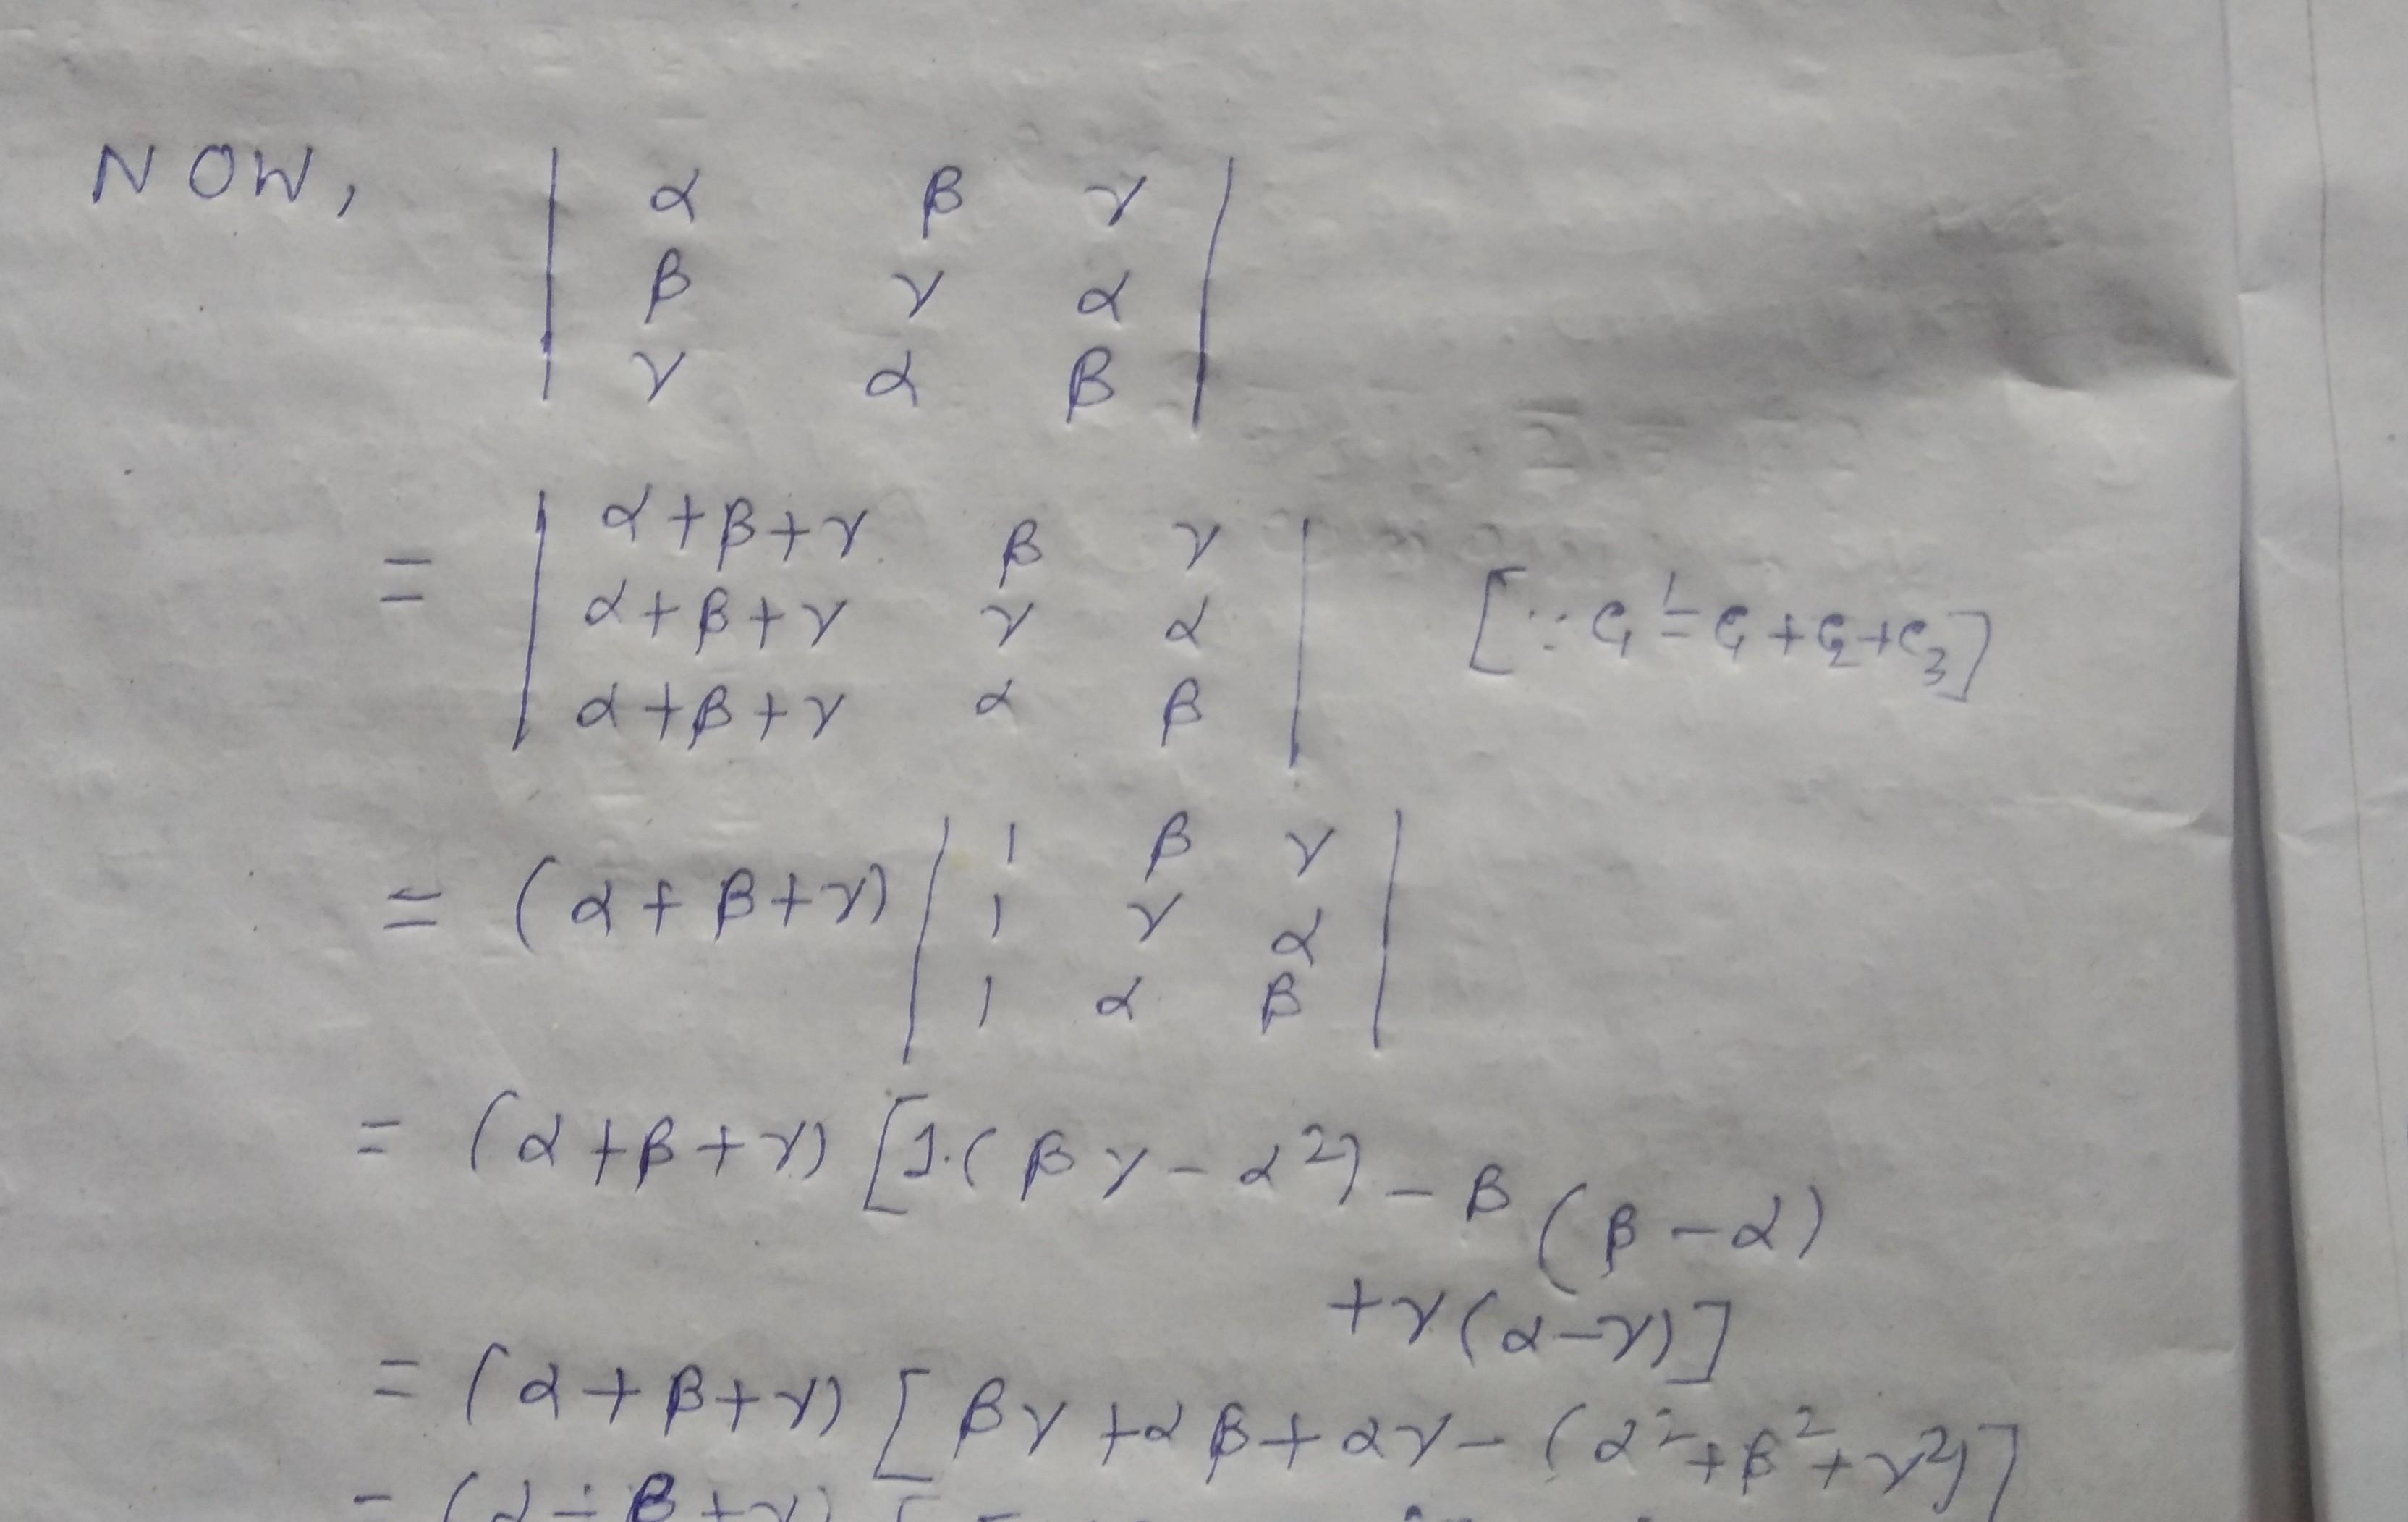 NOW, | α β γ |
| β γ α |
| γ α β |
= | α+β+γ β γ |
| α+β+γ γ α | [∵ C₁' = C₁+C₂+C₃]
| α+β+γ α β |
= (α+β+γ) | 1 β γ |
| 1 γ α |
| 1 α β |
= (α+β+γ) [1.(βγ-α²) - β(β-α)
+γ(α-γ)]
= (α+β+γ) [βγ+αβ+αγ-(α²+β²+γ²)]
= (α+β+γ) [